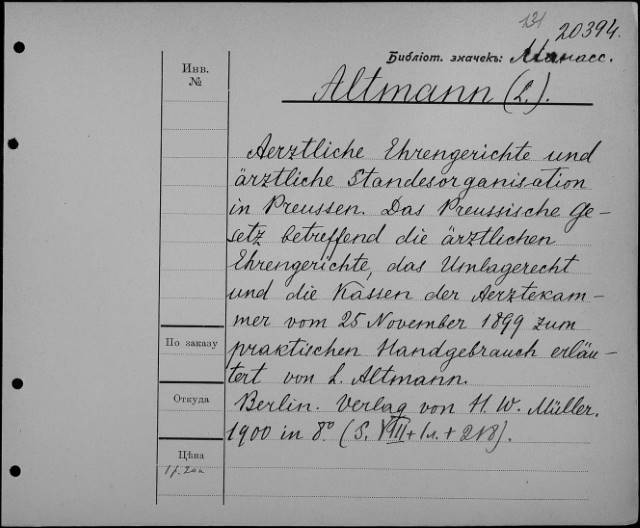 131 20394.
Библіот. значекъ: Манасс.
Инв.
№
Altmann (L.).
Aerztliche Ehrengerichte und
ärztliche Standesorganisation
in Preussen. Das Preussische Ge-
setz betreffend die ärztlichen
Ehrengerichte, das Umlagerecht
und die Kassen der Aerztekam-
mer vom 25 November 1899 zum
По заказу
praktischen Handgebrauch erläu-
tert von L. Altmann.
Откуда
Berlin. Verlag von H. W. Müller.
1900 in 8° (S. VIII + 1 л. + 218).
Цѣна